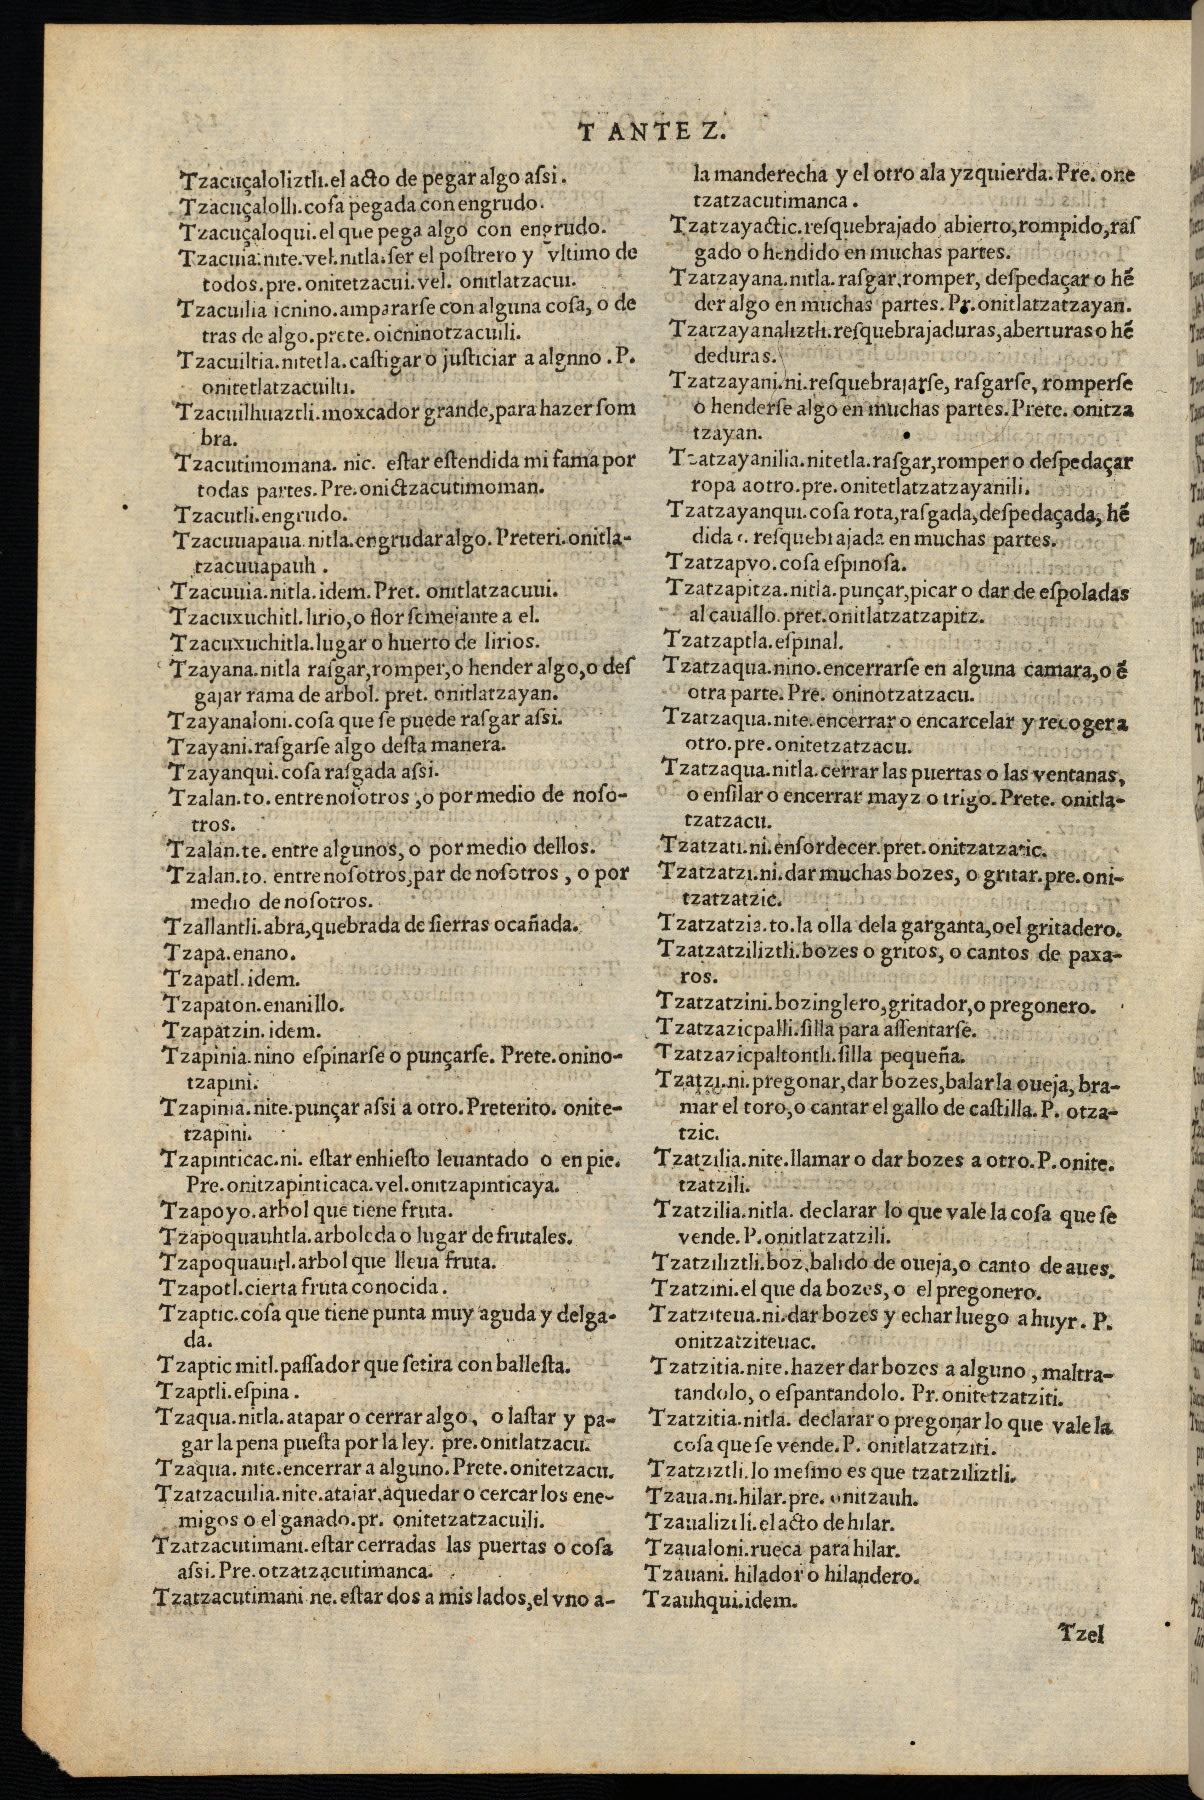 T ANTE Z.
Tzacuçaloliztli.el acto de pegar algo aſsi.
Tzacuçalolli.coſa pegada con engrudo.
Tzacuçaloqui.el que pega algo con engrudo.
Tzacuia.nite.vel.nitla.ſer el poſtrero y vltimo de
todos.pre.onitetzacui.vel. onitlatzacui.
Tzacuilia icnino.ampararſe con alguna coſa, o de
tras de algo.prete.oicninotzacuili.
Tzacuiltia.nitetla.caſtigar o juſticiar a algnno .P.
onitetlatzacuilti.
Tzacuilhuaztli.moxcador grande,para hazer ſom
bra.
Tzacutimomana. nic. eſtar eſtendida mi fama por
todas partes.Pre.onictzacutimoman.
Tzacutli.engrudo.
Tzacuuapaua.nitla.engrudar algo. Preteri.onitla-
tzacuuapauh .
Tzacuuia.nitla.idem.Pret. onitlatzacuui.
Tzacuxuchitl.lirio,o flor ſemejante a el.
Tzacuxuchitla.lugar o huerto de lirios.
Tzayana.nitla raſgar,romper,o hender algo,o deſ
gajar rama de arbol. pret. onitlatzayan.
Tzayanaloni.coſa que ſe puede raſgar aſsi.
Tzayani.raſgarſe algo deſta manera.
Tzayanqui.coſa raſgada aſsi.
Tzalan.to. entre noſotros ,o por medio de noſo-
tros.
Tzalan.te. entre algunos, o por medio dellos.
Tzalan.to. entre noſotros,par de noſotros , o por
medio de noſotros.
Tzallantli.abra,quebrada de ſierras o cañada.
Tzapa.enano.
Tzapatl.idem.
Tzapaton.enanillo.
Tzapatzin.idem.
Tzapinia.nino eſpinarſe o punçarſe. Prete.onino-
tzapini.
Tzapinia.nite.punçar aſsi a otro.Preterito. onite-
tzapini.
Tzapinticac.ni. eſtar enhieſto leuantado o en pie.
Pre.onitzapinticaca.vel.onitzapinticaya.
Tzapoyo.arbol que tiene fruta.
Tzapoquauhtla.arboleda o lugar de frutales.
Tzapoquauitl.arbol que lleua fruta.
Tzapotl.cierta fruta conocida.
Tzaptic.coſa que tiene punta muy aguda y delga-
da.
Tzaptic mitl.paſſador que ſe tira con balleſta.
Tzaptli.eſpina .
Tzaqua.nitla.atapar o cerrar algo, o laſtar y pa-
gar la pena pueſta por la ley. pre.onitlatzacu.
Tzaqua. nite.encerrar a alguno.Prete.onitetzacu.
Tzatzacuilia.nite.atajar,aquedar o cercar los ene-
migos o el ganado.pr. onitetzatzacuili.
Tzatzacutimani.eſtar cerradas las puertas o coſa
aſsi.Pre.otzatzacutimanca.
Tzatzacutimani ne.eſtar dos a mis lados,el vno a-
la manderecha y el otro ala yzquierda. Pre. one
tzatzacutimanca .
Tzatzayactic.reſquebrajado abierto,rompido,raſ
gado o hendido en muchas partes.
Tzatzayana.nitla.raſgar,romper, deſpedaçar o hẽ
der algo en muchas partes. Pr.onitlatzatzayan.
Tzatzayanaliztli.reſquebrajaduras,aberturas o hẽ
deduras.
Tzatzayani.ni.reſquebrajarſe, raſgarſe, romperſe
o henderſe algo en muchas partes.Prete. onitza
tzayan.
Tzatzayanilia.nitetla.raſgar,romper o deſpedaçar
ropa aotro.pre.onitetlatzatzayanili.
Tzatzayanqui.coſa rota,raſgada,deſpedaçada, hẽ
dida o reſquebrajada en muchas partes.
Tzatzapyo.coſa eſpinoſa.
Tzatzapitza.nitla.punçar,picar o dar de eſpoladas
al cauallo.pret.onitlatzatzapitz.
Tzatzaptla.eſpinal.
Tzatzaqua.nino.encerrarſe en alguna camara,o ẽ
otra parte.Pre. oninotzatzacu.
Tzatzaqua.nite.encerrar o encarcelar y recoger a
otro.pre.onitetzatzacu.
Tzatzaqua.nitla.cerrar las puertas o las ventanas,
o enſilar o encerrar mayz o trigo.Prete. onitla-
tzatzacu.
Tzatzati.ni.enſordecer.pret.onitzatzatic.
Tzatzatzi.ni.dar muchas bozes, o gritar.pre.oni-
tzatzatzic.
Tzatzatzia.to.la olla dela garganta,oel gritadero.
Tzatzatziliztli.bozes o gritos, o cantos de paxa-
ros.
Tzatzatzini.bozinglero,gritador,o pregonero.
Tzatzazicpalli.ſilla para aſſentarſe.
Tzatzazicpaltontli.ſilla pequeña.
Tzatzi.ni.pregonar,dar bozes,balar la oueja, bra-
mar el toro,o cantar el gallo de caſtilla.P. otza-
tzic.
Tzatzilia.nite.llamar o dar bozes a otro.P.onite.
tzatzili.
Tzatzilia.nitla. declarar lo que vale la coſa que ſe
vende. P.onitlatzatzili.
Tzatziliztli.boz,balido de oueja,o canto de aues.
Tzatzini.el que da bozes, o el pregonero.
Tzatziteua.ni.dar bozes y echar luego a huyr. P.
onitzatziteuac.
Tzatzitia.nite.hazer dar bozes a alguno , maltra-
tandolo, o eſpantandolo. Pr.onitetzatziti.
Tzatzitia.nitla. declarar o pregonar lo que vale la
coſa que ſe vende.P. onitlatzatziti.
Tzatziztli.lo meſmo es que tzatziliztli.
Tzaua.ni.hilar.pre. onitzauh.
Tzaualiztli.el acto de hilar.
Tzaualoni.rueca para hilar.
Tzauani. hilador o hilandero.
Tzauhqui.idem.
Tzel